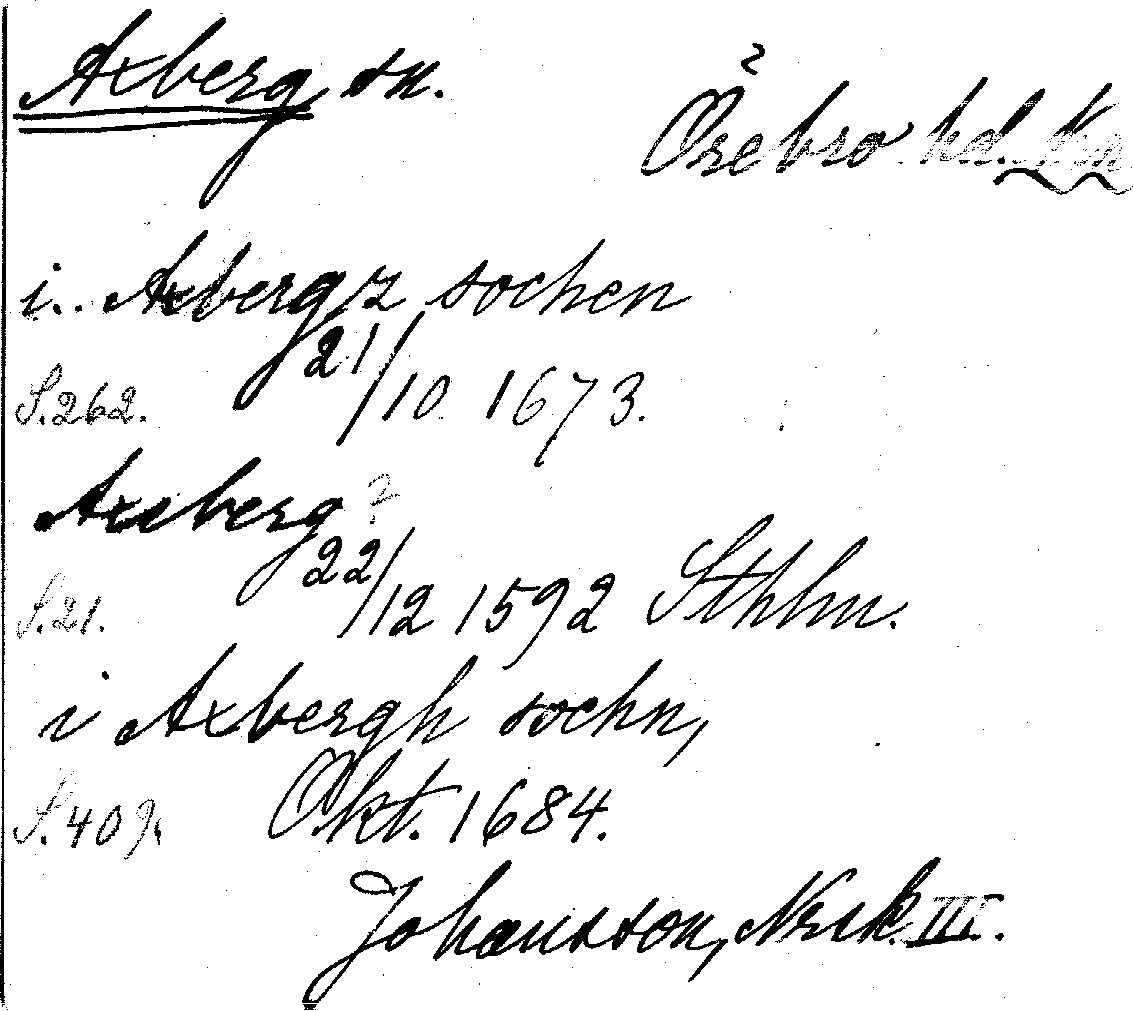 Axberg sn.
2
Örebro hd. Nrk
i. Axbergz sochen
21/10 1673.
S.262.
Axsberg ?
22/12 1592 Sthlm.
S.21.
i Axbergh sochn,
S.409. Okt. 1684.
Johansson, Nrk. III.